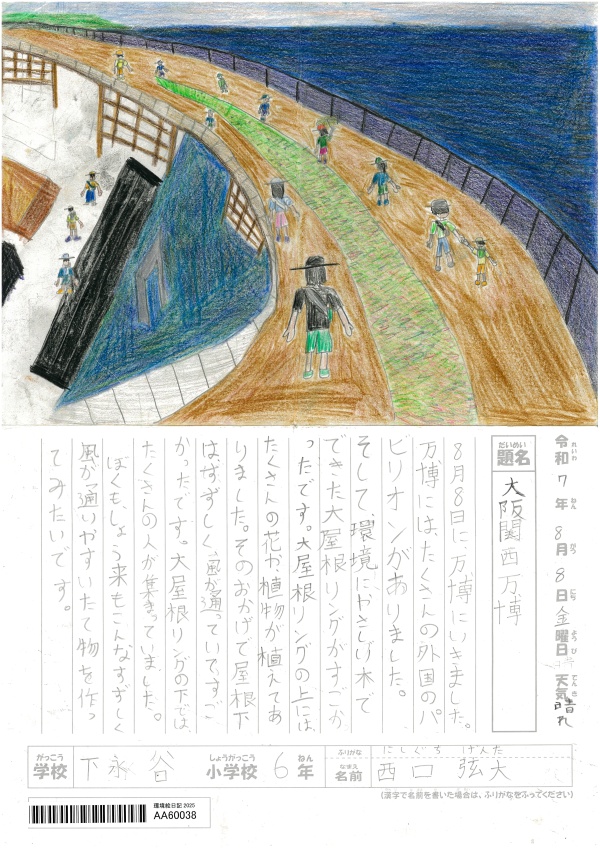 令和7年8月8日金曜日 天気 晴れ
れいわ ねん がつ にち ようび てんき
だいめい
題名 大阪関西万博
8月8日に、万博にいきました。
万博には、たくさんの外国のパ
ビリオンがありました。
そして、環境にやさしい木で
できた大屋根リングがすごか
ったです。大屋根リングの上には
たくさんの花や、植物が植えてあ
りました。そのおかげで屋根下
はすずしく、風が通っていてすご
かったです。大屋根リングの下では
たくさんの人が集まっていました。
ぼくもしょう来もこんなすずしく
風が通いやすいたて物を作っ
てみたいです。
がっこう しょうがっこう ねん
学校 下永谷 小学校 6年
ふりがな にしぐち げんた
なまえ
名前 西口 弦大
(漢字で名前を書いた場合は、ふりがなをふってください)
環境絵日記 2025
AA60038